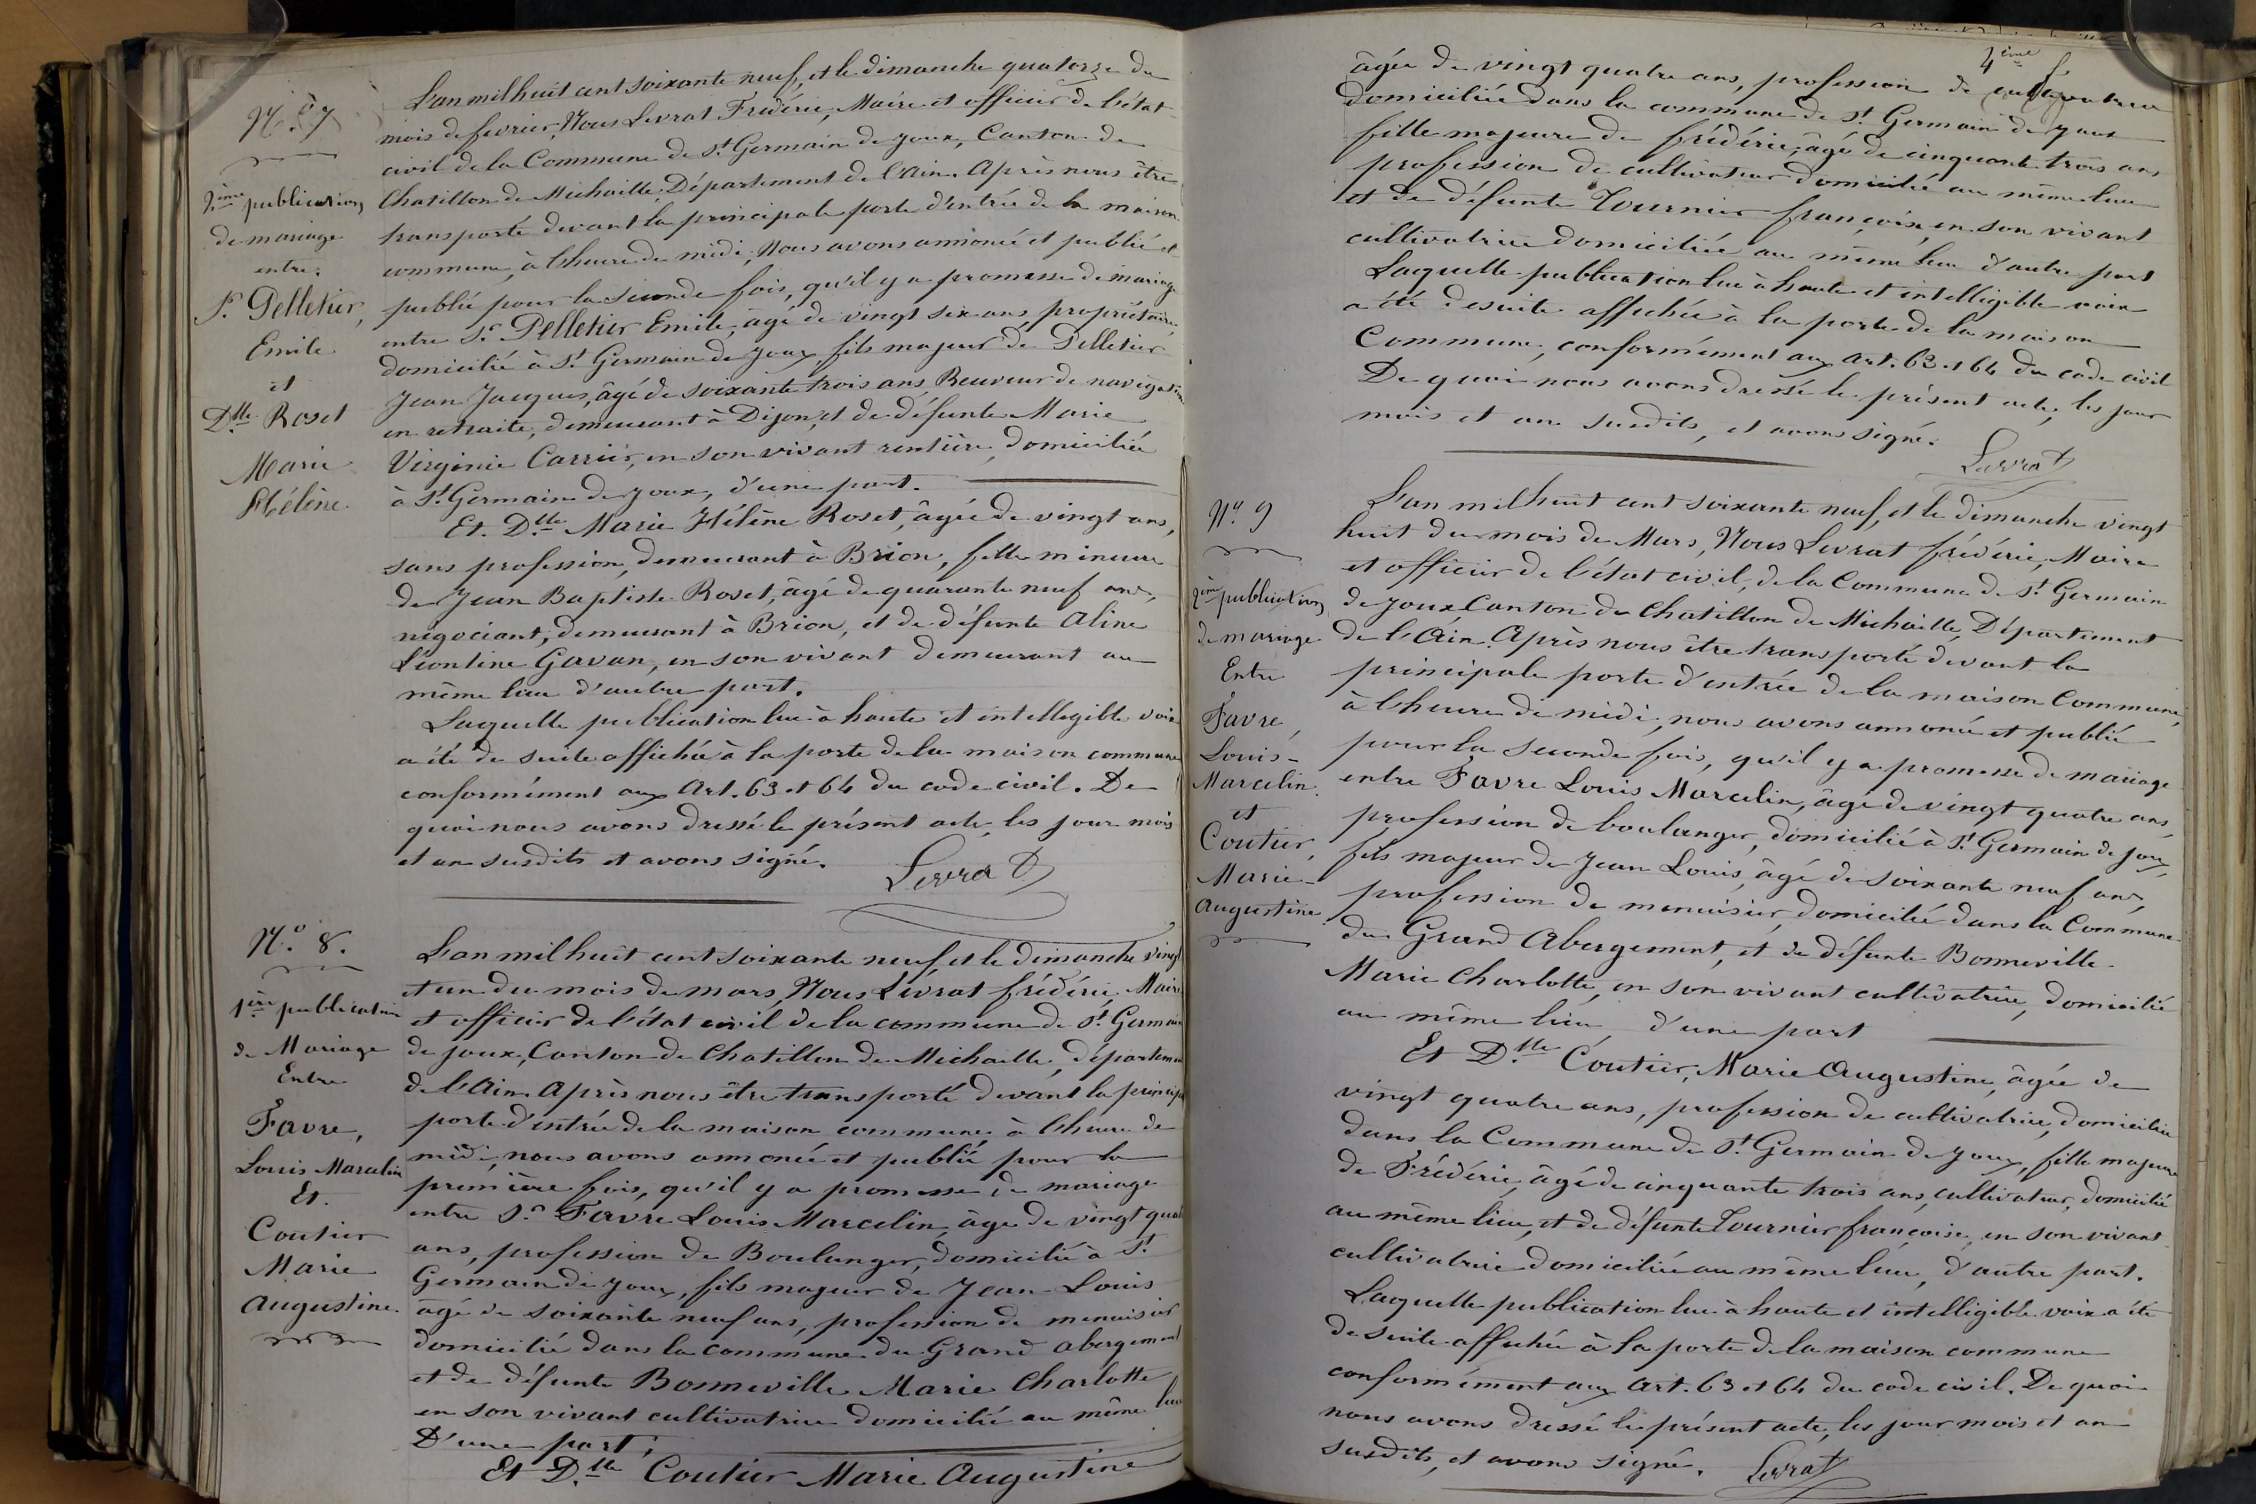 N.° 7
2ème publication
de mariage
entre
Sr. Pelletier,
Emile
et
Dlle. Roset
Marie
Hélène.
L'an mil huit cent soixante neuf, et le dimanche quatorze du
mois de fevrier, Nous Levrat Fréderic, Maire et officier de l'état-
civil de la Commune de St Germain de joux, Canton de
Chatillon de Michaille, Département de l'Ain. Après nous être
transporté devant la principale porte d'entrée de la maison
commune, à l'heure de midi; Nous avons annoncé et publié et
publié pour la seconde fois, qu'il y a promesse de mariage
entre Sr. Pelletier Emile, âgé de vingt six ans, propriétaire
domicilié à St. Germain de joux, fils majeur de Pelletier
Jean Jacques, âgé de soixante trois ans Receveur de navigation
en retraite, demeurant à Dijon, et de défunte Marie
Virginie Carrier, en son vivant rentière, domiciliée
à St. Germain de joux, d'une part.
Et. Dlle. Marie Hélène Roset, âgée de vingt ans,
sans profession, demeurant à Brion, fille mineure
de Jean Baptiste Roset, âgé de quarante neuf ans,
négociant, demeurant à Brion, et de défunte Aline
Léontine Gavan, en son vivant demeurant au
même lieu d'autre part.
Laquelle publication lue à haute et intellegible voix
a été de suite affichée à la porte de la maison commune
conformément aux Art. 63 et 64 du code civil. De
quoi nous avons dressé le présent acte, les jour mois
et an susdits et avons signé.
Levrat
N.° 8.
1ère publication
de Mariage
Entre
Favre,
Louis Marcelin
Et.
Coutier
Marie
Augustine.
L'an mil huit cent soixante neuf, et le dimanche vingt
et un du mois de mars, Nous Levrat frédéric, Maire
et officier de l'état civil de la commune de St. Germain
de joux, Canton de Chatillon de Michaille, départemen
de l'Ain. Après nous être transporté devant la principa
porte d'entrée de la maison commune à l'heure de
midi, nous avons annoncé et publié pour la
première fois, qu'il y a promesse de mariage
entre Sr. Favre Louis Marcelin, âgé de vingt quat
ans, profession de Boulanger, domicilié à St.
Germain de joux, fils majeur de Jean-Louis
âgé de soixante neuf ans, profession de menuisier
domicilié dans la commune du Grand abergement
et de défunte Bonneville Marie Charlotte
en son vivant cultivatrice domicilié au même lieu
D'une part;
Et Dlle. Coutier Marie Augustine
4ème f.
âgée de vingt quatre ans, profession de cultivatrice
domiciliée dans la commune de St. Germain de joux
fille majeure de frédéric, âgé de cinquante trois ans
profession de cultivateur domicilié au même lieu
et de défunte Tournier françoise, en son vivant
cultivatrice domiciliée au même lieu d'autre part
Laquelle publication lue à haute et intelligible voix
a été desuite affichée à la porte de la maison
Commune, conformément aux Art. 63 et 64 du code civil
De quoi nous avons dressé le présent acte, les jour
mois et an susdits, et avons signé.
Levrat
N.° 9
2ème publication
de mariage
Entre
Favre,
Louis-
Marcelin.
et
Coutier,
Marie-
Augustine
L'an mil huit cent soixante neuf, et le dimanche vingt
huit du mois de Mars, Nous Levrat frédéric, Maire
et officier de l'état civil, de la Commune de St. Germain
de joux, Canton de Chatillon de Michaille, Département
de l'Ain. Après nous être transporté devant la
principale porte d'entrée de la maison Commune,
à l'heure de midi, nous avons annoncé et publié
pour la seconde fois, qu'il y a promesse de mariage
entre Favre Louis Marcelin, âgé de vingt quatre ans,
profession de boulanger, domicilié à St. Germain de joux,
fils majeur de Jean Louis, âgé de soixante neuf ans,
profession de menuisier, domicilié dans la Commune
du Grand Abergement, et de défunte Bonneville
Marie Charlotte, en son vivant cultivatrice, domicilié
au même lieu, d'une part
Et Dlle. Coutier, Marie Augustine, âgée de
vingt quatre ans, profession de cultivatrice, domiciliée
dans la Commune de St. Germain de joux, fille majeure
de Frédéric, âgé de cinquante trois ans, cultivateur, domicilié
au même lieu, et de défunte Tournier françoise, en son vivant
cultivatrice domiciliée au même lieu, d'autre part.
Laquelle publication lue à haute et intelligible voix a été
de suite affichée à la porte de la maison commune
conformément aux Art. 63 et 64 du code civil. De quoi
nous avons dressé le présent acte, les jour mois et an
susdits, et avons signé.
Levrat